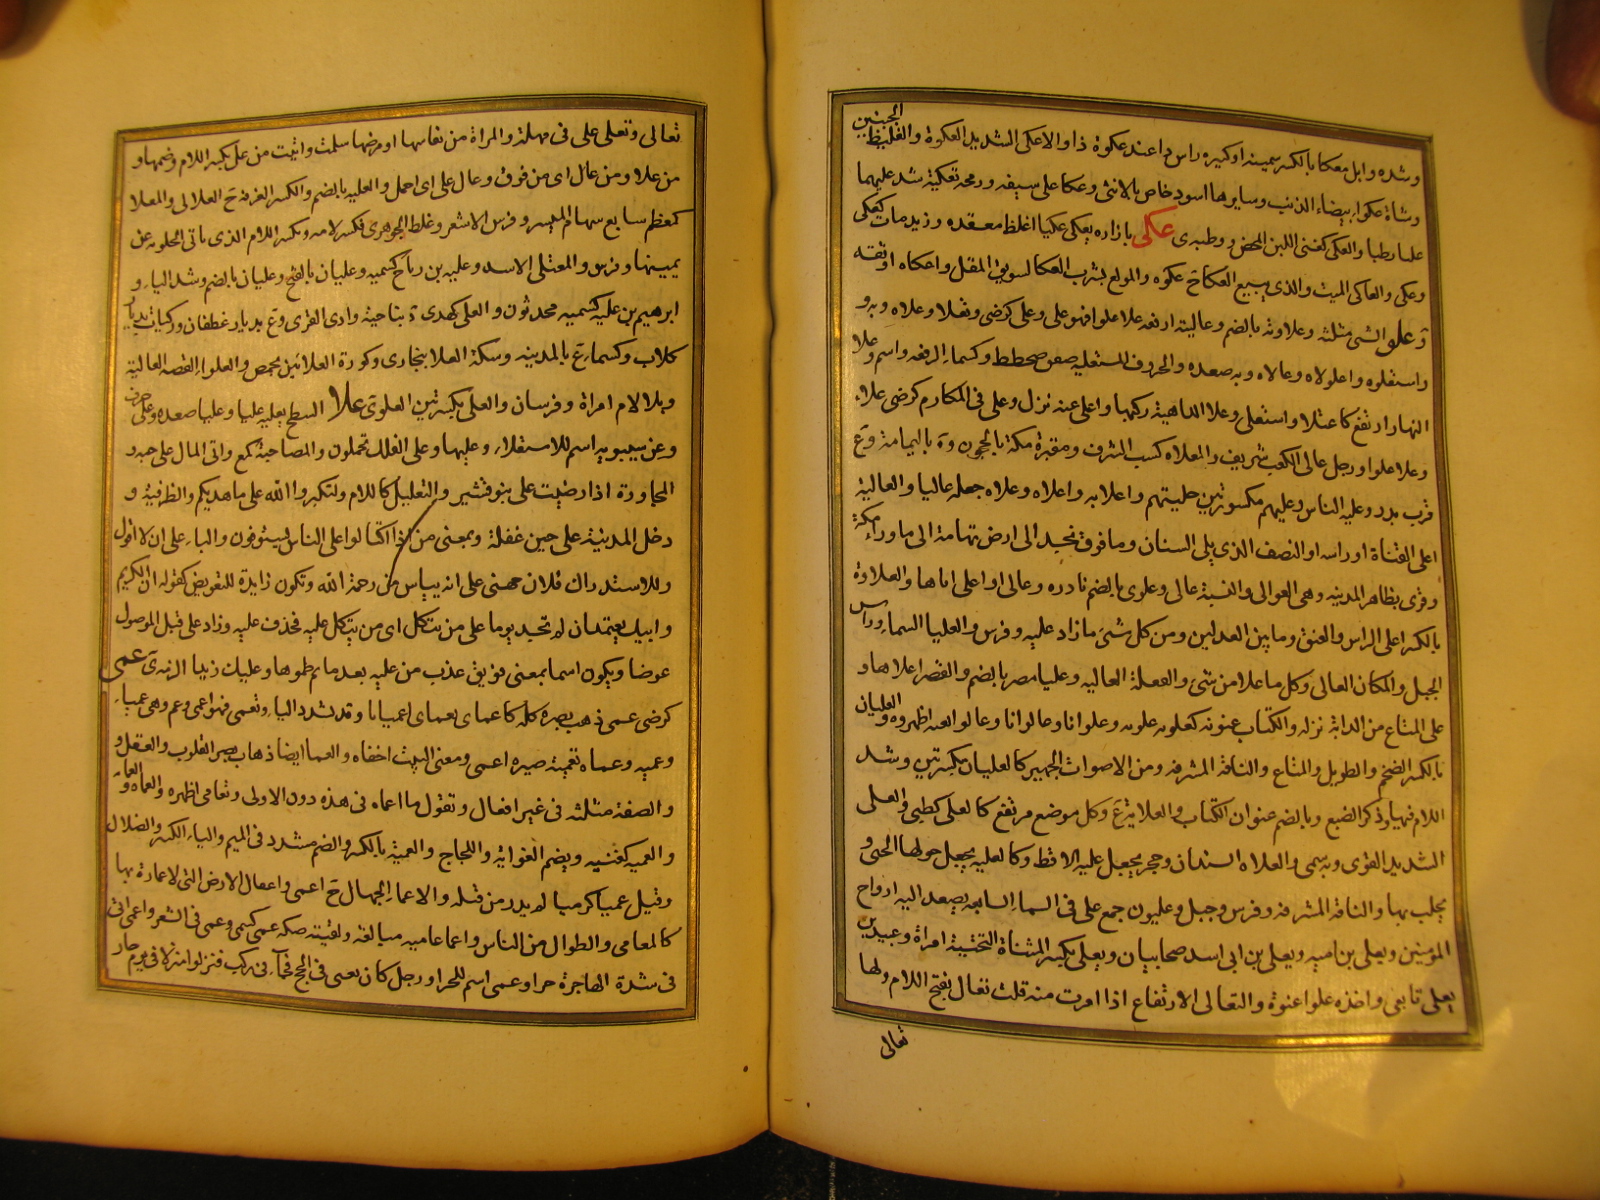 الجنبين
وشده وابل معكا بالكسر سمينة او كثيرة راس ذا عند عكوة ذا والاعكى الشديد العكوة والغليظ
وشاة عكواء بيضاء الذنب وسايرها اسود خاص بالانثى وعكا على سيفه ورمحه تعكية شد عليهما
علبا رطبا والعكى كغنى اللبن المحض ووطبه ى عكى بازاره يعكى عكيا اغلظ معقده وزيد مات كعكى
وعكى والعاكى الميت والذى يبيع العكا ج عكوة والمولع بشرب العكا لسويق المقل واعكاه اوثقه
و علو الشئ مثلثة وعلاوته بالضم وعاليته ارفعه علا علوا فهو على وعلى كرضى وتعلا وعلاه وبه و
واستعلاه واعلولاه وعالاه وبه صعده والحروف المستعلية صغض خطظ وكسماء الرفعة واسم وعلا
النهار ارتفع كاعتلا واستعلى وعلا الدابة ركبها واعلى عنه نزل وعلى فى المكارم كرضى علاء
وعلا علوا ورجل عالى الكعب شريف والمعلاة كسب الشرف ومقبرة مكة بالحجون وة باليمامة وع
قرب بدر وعلية الناس وعليهم مكسورتين جلتهم واعلا به واعلاه وعلاه جعله عاليا والعالية
اعلى القناة او راسه او النصف الذى يلى السنان وما فوق نجد الى ارض تهامة الى ما وراء مكة
وقرى بظاهر المدينة وهى العوالى والنسبة عالى وعلوى بالضم نادره وعالى او اعلى اتاها والعلاوة
بالكسر اعلى الراس والعنق وما بين العدلين ومن كل شئ ما زاد عليه وفرس والعليا السماء وراس
الجبل والمكان العالى وكل ما علا من شئ والفعلة العالية وعليا مضر بالضم والقصر اعلاها و
على المتاع من الدابة نزله والكتاب عنونه كعلونه علونة وعلوانا وعالوانا وعالوا نعيه اظهروه والعليان
بالكسر الضخم والطويل والمتاع والناقة المشرفة ومن الاصوات الجهير كالعليان مكسرتين وشد
اللام فيهما وذكر الضبع وبالضم عنوان الكتاب والعلاية ع وكل موضع مرتفع كالعلى كظبى والعلى
الشديد القوى وبه سمى والعلاة السندان وحجر يجعل عليه الاقط وكالعلبة يجعل حولها الخثى و
يحلب بها والناقة المشرفة وفرس وجبل وعليون جمع على فى السماء السابعة يصعد اليه ارواح
المؤمنين ويعلى بن امية ويعلى بن ابى اسد صحابيان ويعلى بكسر المثناة التحتية امراة وعبيد بن
يعلى تابعى واخذه علوا عنوة والتعالى الارتفاع اذا امرت منه قلت تعال بفتح اللام ولها
تعالى
تعالى وتعلى على فى مهلة والمراة من نفاسها او مرضها سلمت واتيت من عل بكسر اللام وضمها و
من علا ومن عال اى من فوق وعال على اى احمل والعلية بالضم والكسر الغرفة ج العلالى والمعلا
كمعظم سابع سهام الميسر وفرس الاشعر وغلط الجوهرى فكسر لامه وبكسر اللام الذى ياتى الحلوبة من
يمينها وفرس والمعتلى الاسد وعلية بن رباح كسمية وعليان بالفتح وعليان بالضم وشد الياء و
ابرهيم بن علية كسمية محدثون والعلى كهدى ة بناحية وادى القرى وع بديار غطفان وركيات بديار
كلاب وكسماء ع بالمدينة وسكة العلا ببخارى وكورة العلاتين بحمص والعلواء القصة العالية
وبلا لام امراة وفرسان والعلى بكسرتين العلو ى علا السطح يعليه عليا وعليا صعده وعلى حرف
وعن سيبويه اسم للاستعلاء وعليها وعلى الفلك تحملون والمصاحبة كمع واتى المال على حبه و
المجاوزة اذا رضيت على بنو قشير والتعليل كاللام ولتكبروا الله على ما هديكم والظرفية و
دخل المدينة على حين غفلة وبمعنى من اذا اكتالوا على الناس يستوفون والباء على ان لا اقول
وللاستدراك فلان جهنمى على انه لا يياس من رحمة الله وتكون زايدة للتعويض كقوله ان الكريم
وابيك يعتمدان لم تجد يوما على من يتكل اى من يتكل عليه فحذف عليه وزاد على قبل الموصول
عوضا ويكون اسما بمعنى فوق عذب من عليه بعد ما تم ظموها وعليك زيدا الزمه ى عمى
كرضى عمى ذهب بصره كله كاعماى يعماى اعمياا وقد تشدد الياء وتعمى فهو اعمى وعم وهى عمياء
وعمية وعماه تعمية صيره اعمى ومعنى البيت اخفاه والعما ايضا ذهاب بصر القلوب والعقل و
والصفة مثلثه فى غير افعال وتقول ما اعماه فى هذه دون الاولى وتعامى اظهره والعماه والعماية
والعمية كغنية ويضم الغواية واللجاج والعمية بالكسر والضم مشدد فى الميم والياء الكبر والضلال
وقتيل عميا كرميا لم يدر من قتله والاعماء الجهال ج اعمى واغفال الارض التى لا عمارة بها
كالمعامى والطوال من الناس واعما عامية مبالغة ولقيته صكة عمى كسمى وعمى فى الشعر واعمى اى
فى شدة الهاجرة حرا وعمى اسم للحر او رجل كان يفتى فى الحج فجاء فى ركب فنزلوا منزلا فى يوم حار